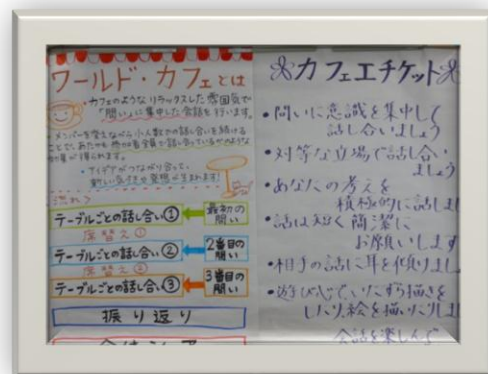 ワールド・カフェとは
・カフェのようなリラックスした雰囲気で
「問い」に集中した会話を行います。
・メンバーを変えながら小人数での話し合いを続ける
ことで、あたかも参加者全員で話し合っているかのような
効果が得られます。
・アイデアがつながり合って、
新しい気づきや発想が生まれます!
流れ
テーブルごとの話し合い①
最初の
問い
席替え①
テーブルごとの話し合い②
2番目の
問い
席替え②
テーブルごとの話し合い③
3番目の
問い
振り返り
カフェエチケット
・問いに意識を集中して
話し合いましょう
・対等な立場で話し合い
ましょう
・あなたの考えを
積極的に話しま
・話は短く簡潔に
お願いします
・相手の話に耳を傾けまし
・遊び心でいたずら描きを
したり、絵を描いたりしま
会話を楽しんで